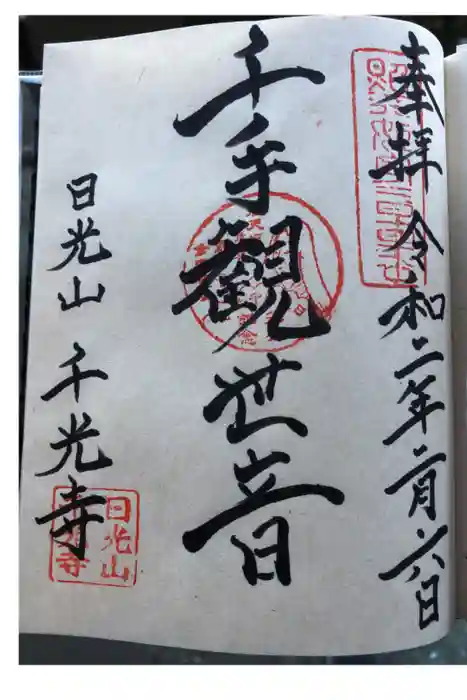 奉拝 令和二年二月六日
千手観世音
日光山 千光寺
日光山